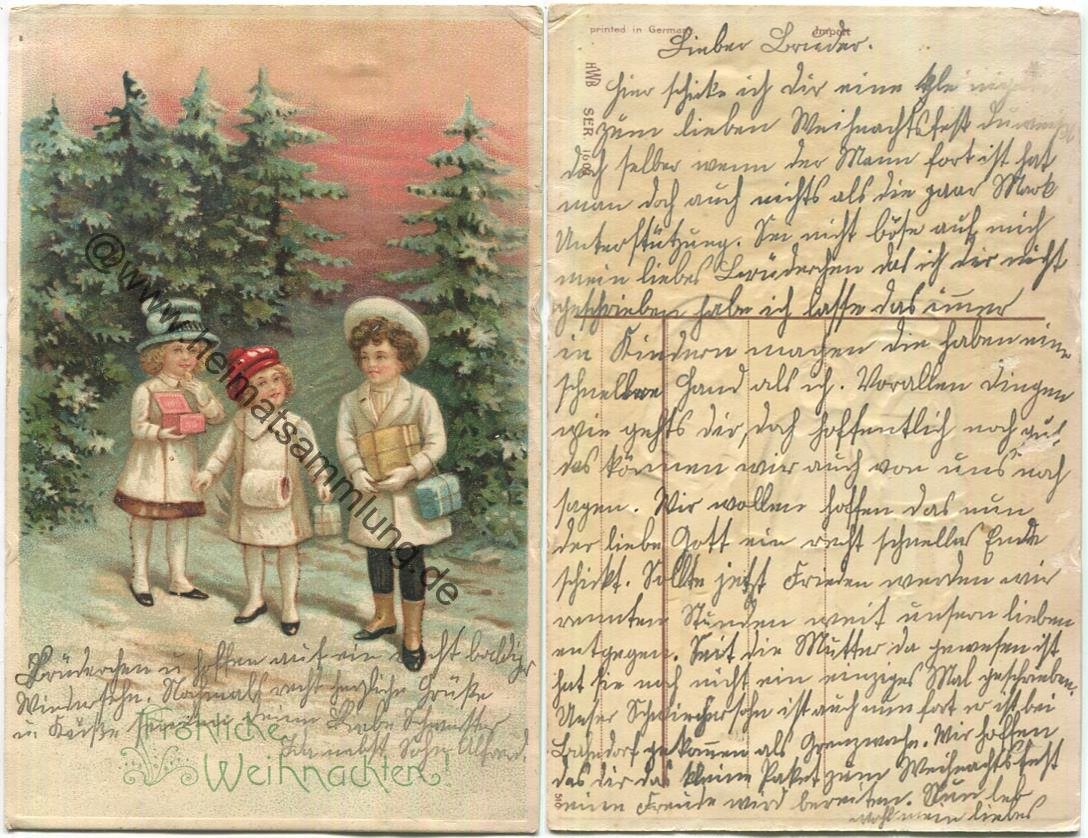 printed in Germany
Import
HWB SER
Lieber Brüder.
Hier schicke ich dir eine Kleinig
zum lieben Weihnachtsfest du weißt
doch selber wenn der Mann fort ist hat
man doch auch nichts als die paar Mark
Unterstützung. Sei nicht böse auf mich
mein liebes Brüderchen das ich dir nicht
geschrieben habe ich lasse das immer
in Kindern machen die haben eine
schnellere Hand als ich. Vorallen Dingen
wie gehts dir, doch hoffentlich noch gut
das können wir auch von uns noch
sagen. Wir wollen hoffen das nun
der liebe Gott ein recht schnelles Ende
schickt. Sollte jetzt Frieden werden wir
rennten Stunden weit unsern lieben
entgegen. Seit die Mutter da gewesen ist
hat sie noch nicht ein einziges Mal geschrieben.
Unser Schwiegersohn ist auch nun fort er ist bei
gekommen als Grenzwache. Wir hoffen
das dir das kleine Paket zum Weihnachtsfest
eine Freude wird bereiten. Nun leb
wohl mein liebes
Brüderchen u hoffen auf ein recht baldiges
Wiedersehn. Nochmals recht herzliche Grüße
u Küße deine liebe Schwester
nebst Sohn Alfred.
Fröhliche
Weihnachten!
@www.heimatsammlung.de